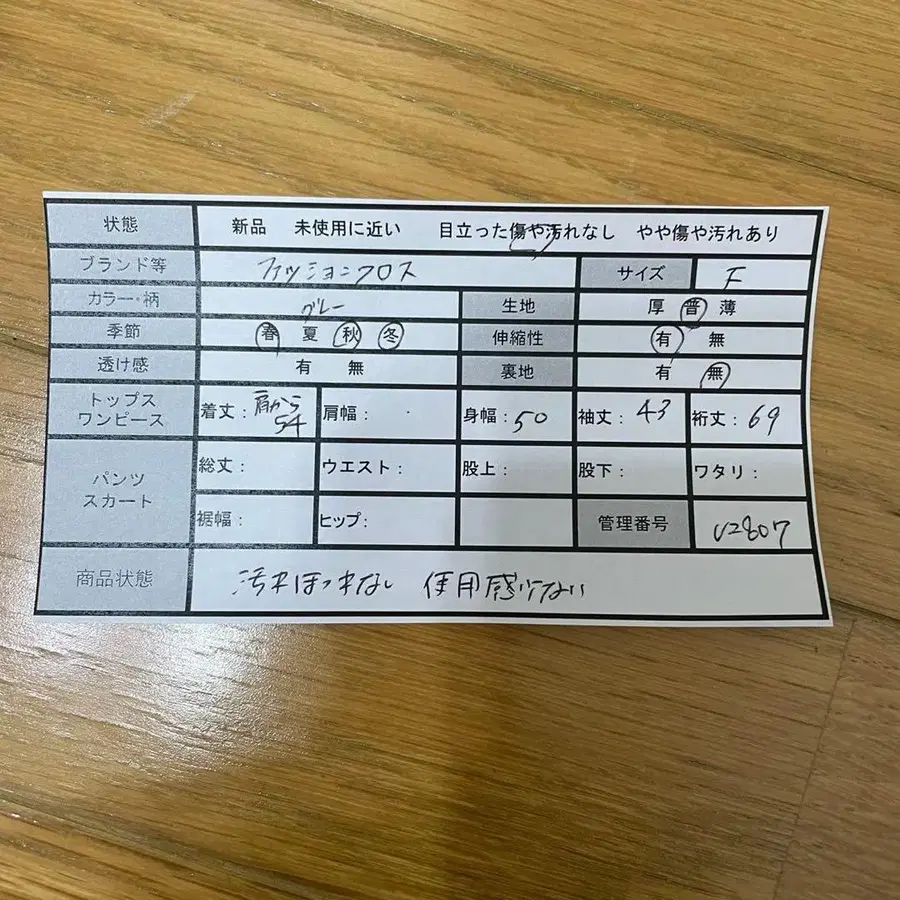 状態 新品 未使用に近い 目立った傷や汚れなし やや傷や汚れあり
ブランド等 ファッションクロス サイズ F
カラー・柄 グレー 生地 厚 普 薄
季節 春 夏 秋 冬 伸縮性 有 無
透け感 有 無 裏地 有 無
トップス
ワンピース
着丈: 肩から 54 肩幅: 身幅: 50 袖丈: 43 裄丈: 69
パンツ
スカート
総丈: ウエスト: 股上: 股下: ワタリ:
裾幅: ヒップ: 管理番号 U2807
商品状態 汚れほつれなし 使用感少ない